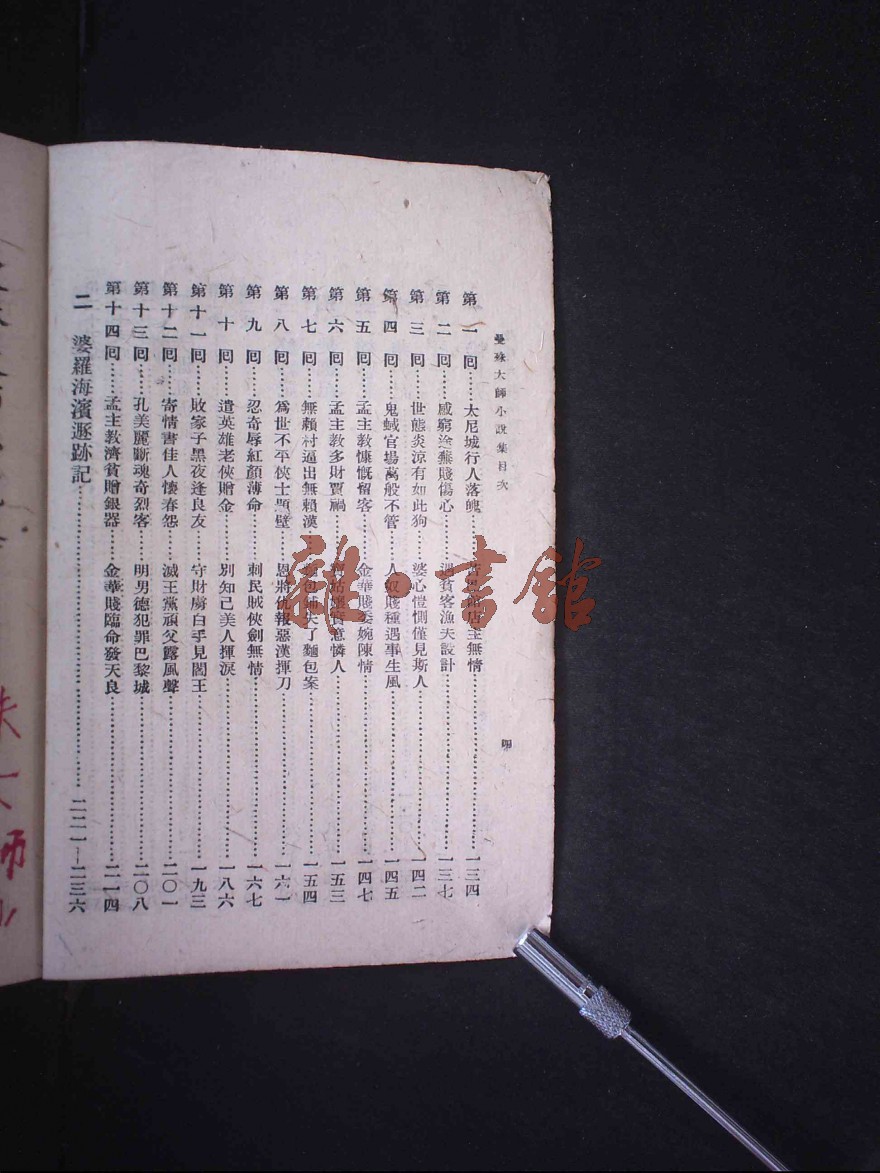 曼殊大師小說集目次　四
第一回……太尼城行人落魄……店主無情……一三四
第二回……感窮途華賤傷心……遇貧客漁夫設計……一三七
第三回……世態炎涼有如此狗……婆心愷惻僅見斯人……一四二
第四回……鬼蜮官場萬般不管……人奴賤種遇事生風……一四五
第五回……孟主教慷慨留客……金華賤委婉陳情……一四七
第六回……孟主教多財賈禍……姑孃實意憐人……一五三
第七回……無賴村逼出無賴漢……包鋪失了麵包案……一五四
第八回……為世不平俠士題壁……恩將仇報惡漢揮刀……一六一
第九回……忍奇辱紅顏薄命……刺民賊俠劍無情……一六七
第十回……遣英雄老俠贈金……別知己美人揮淚……一八六
第十一回……敗家子黑夜逢良友……守財虜白手見閻王……一九三
第十二回……寄情書佳人懷春怨……滅王黨頑父露風聲……二〇一
第十三回……孔美麗斷魂奇烈客……明男德犯罪巴黎城……二〇八
第十四回……孟主教濟貧贈銀器……金華賤臨命發天良……二一四
二　婆羅海濱遯跡記……二二一—二三六
雜·書館
大師